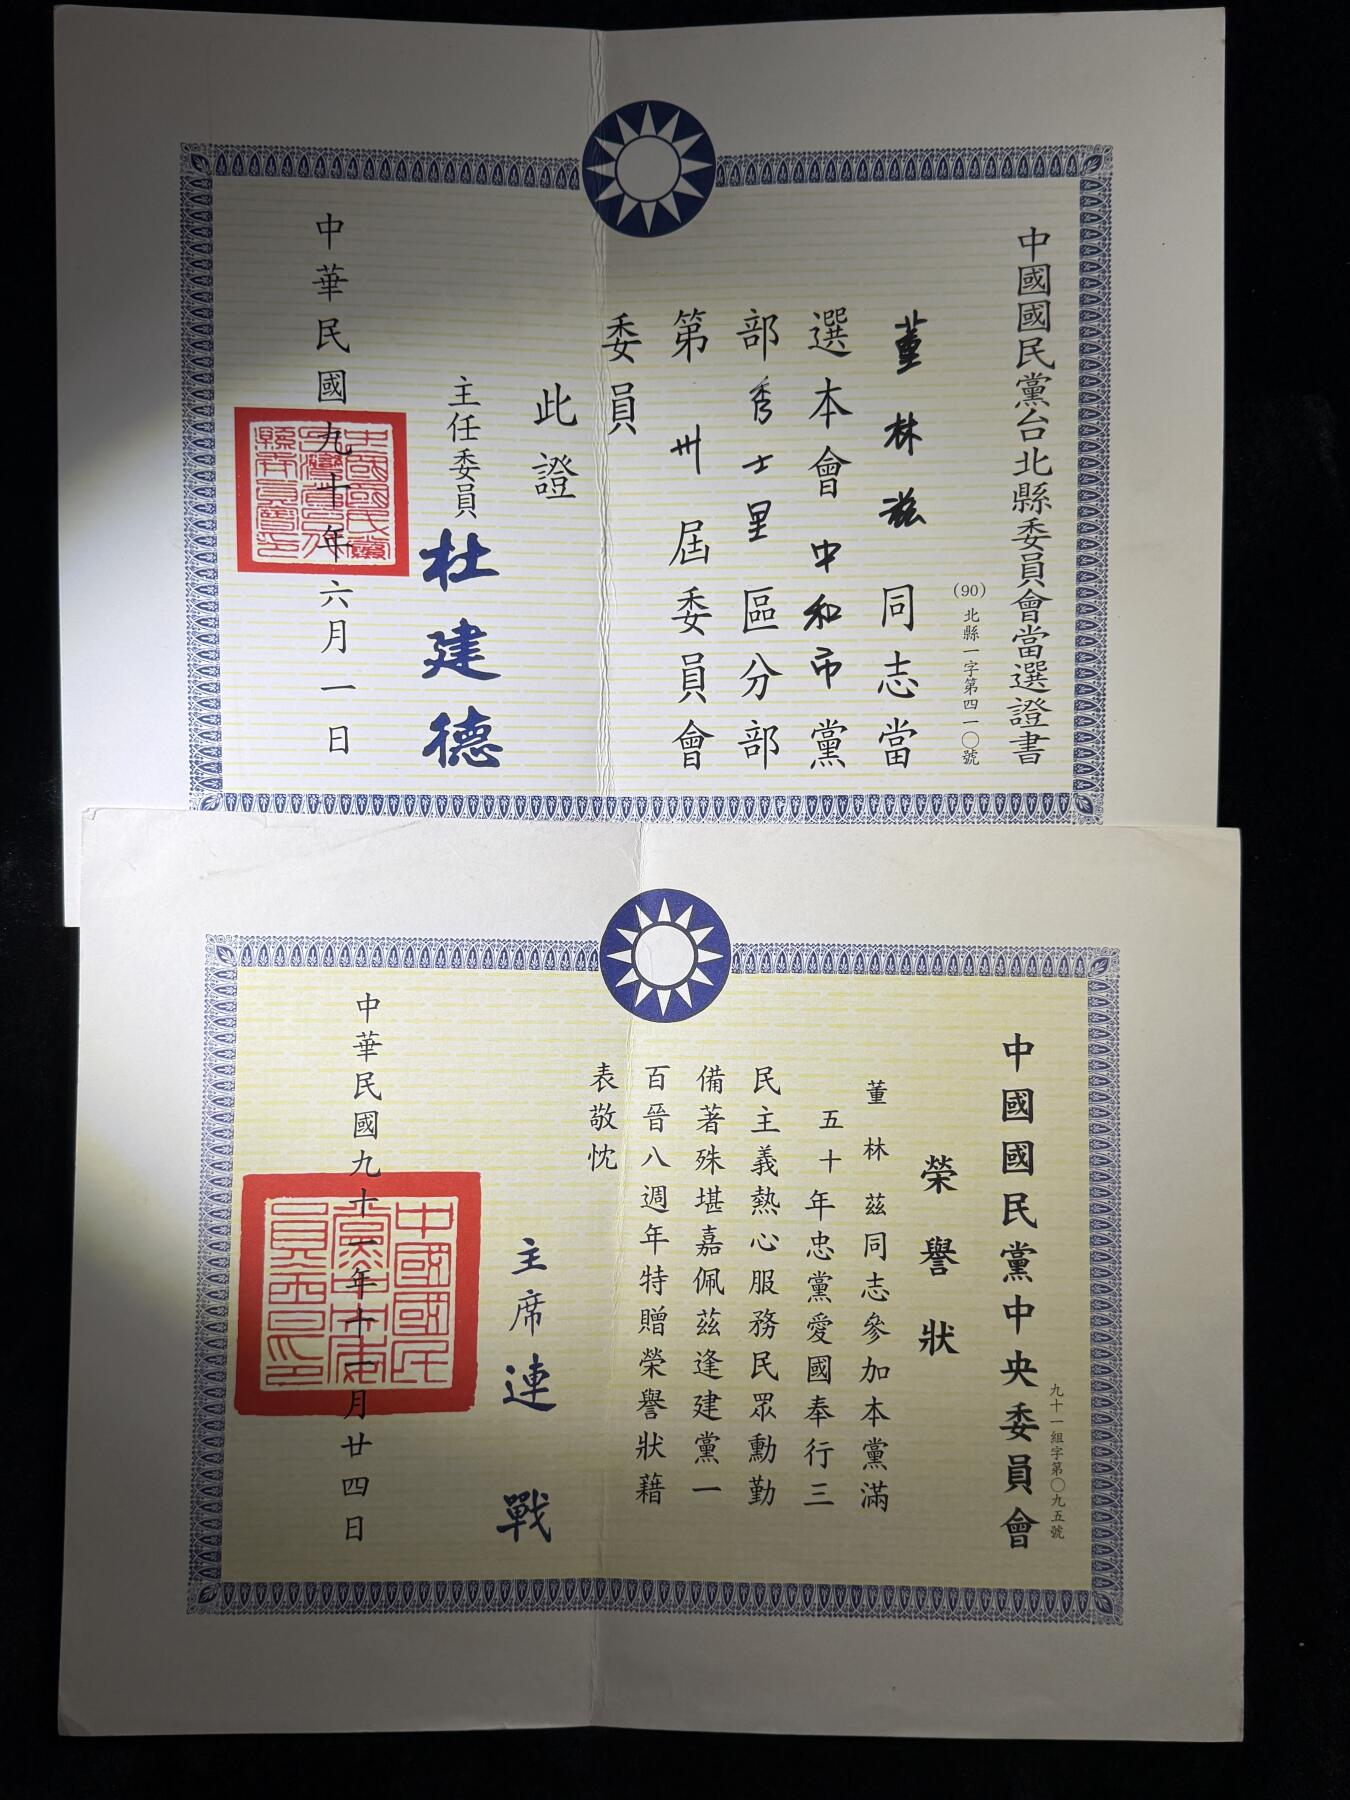 中國國民黨台北縣委員會當選證書
(90)北縣一字第四一〇號
董林茲同志當
選本會中和市黨
部秀士里區分部
第卅屆委員會
委員
此證
主任委員杜建德
中華民國九十年六月一日
九十一組字第〇九五號
中國國民黨中央委員會
榮譽狀
董林茲同志參加本黨滿
五十年忠黨愛國奉行三
民主義熱心服務民眾勳勤
備著殊堪嘉佩茲逢建黨一
百晉八週年特贈榮譽狀藉
表敬忱
主席連戰
中華民國九十一年十一月廿四日
中國國民黨中央委員會印